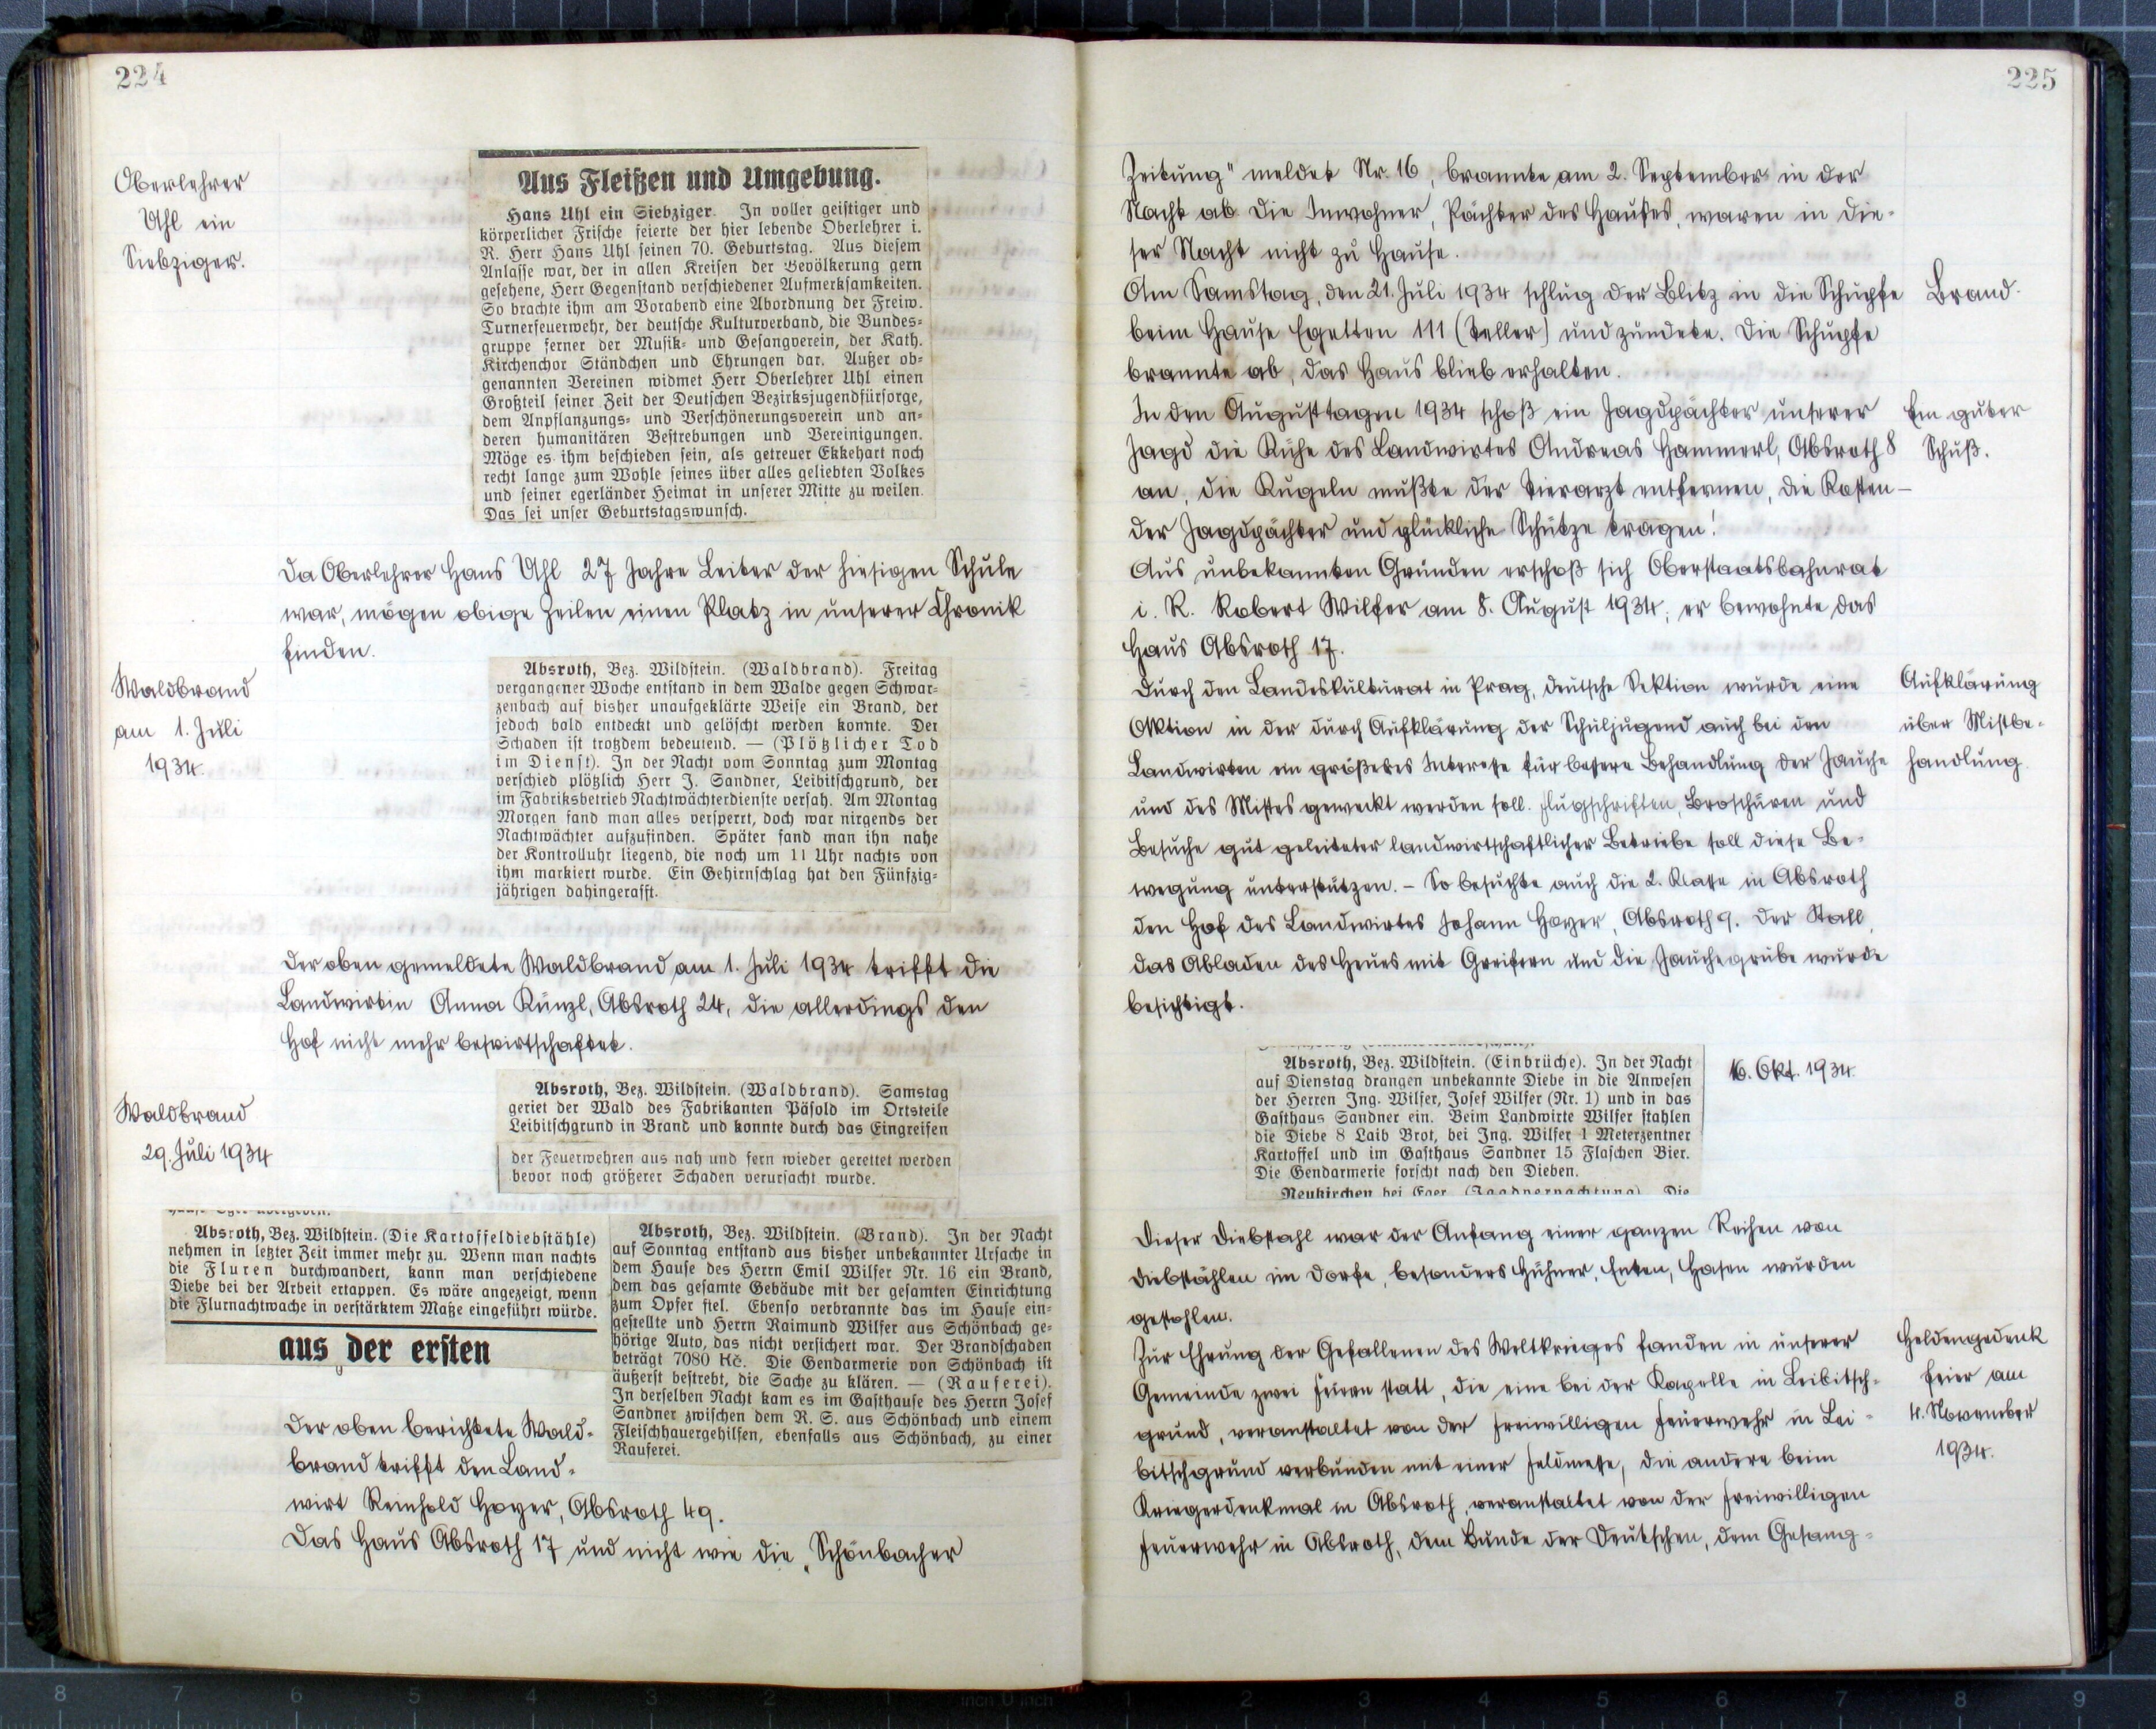 224
Oberlehrer
Uhl ein
Siebziger.
Aus Fleißen und Umgebung.
Hans Uhl ein Siebziger. In voller geistiger und
körperlicher Frische feierte der hier lebende Oberlehrer i.
R. Herr Hans Uhl seinen 70. Geburtstag. Aus diesem
Anlasse war, der in allen Kreisen der Bevölkerung gern
gesehene, Herr Gegenstand verschiedener Aufmerksamkeiten.
So brachte ihm am Vorabend eine Abordnung der Freiw.
Turnerfeuerwehr, der deutsche Kulturverband, die Bundes-
gruppe ferner der Musik- und Gesangverein, der Kath.
Kirchenchor Ständchen und Ehrungen dar. Außer ob-
genannten Vereinen widmet Herr Oberlehrer Uhl einen
Großteil seiner Zeit der Deutschen Bezirksjugendfürsorge,
dem Anpflanzungs- und Verschönerungsverein und an-
deren humanitären Bestrebungen und Vereinigungen.
Möge es ihm beschieden sein, als getreuer Ekkehart noch
recht lange zum Wohle seines über alles geliebten Volkes
und seiner egerländer Heimat in unserer Mitte zu weilen.
Das sei unser Geburtstagswunsch.
Da Oberlehrer Hans Uhl 27 Jahre Leiter der hiesigen Schule
war, mögen obige Zeilen einen Platz in unserer Chronik
finden.
Waldbrand
am 1. Juli
1934.
Absroth, Bez. Wildstein. (Waldbrand). Freitag
vergangener Woche entstand in dem Walde gegen Schwar-
zenbach auf bisher unaufgeklärte Weise ein Brand, der
jedoch bald entdeckt und gelöscht werden konnte. Der
Schaden ist trotzdem bedeutend. — (Plötzlicher Tod
im Dienst). In der Nacht vom Sonntag zum Montag
verschied plötzlich Herr J. Sandner, Leibitschgrund, der
im Fabriksbetrieb Nachtwächterdienste versah. Am Montag
Morgen fand man alles versperrt, doch war nirgends der
Nachtwächter aufzufinden. Später fand man ihn nahe
der Kontrolluhr liegend, die noch um 11 Uhr nachts von
ihm markiert wurde. Ein Gehirnschlag hat den Fünfzig-
jährigen dahingerafft.
Der oben gemeldete Waldbrand am 1. Juli 1934 trifft die
Landwirtin Anna Künzl, Absroth 24, die allerdings den
Hof nicht mehr bewirtschaftet.
Waldbrand
29. Juli 1934
Absroth, Bez. Wildstein. (Waldbrand). Samstag
geriet der Wald des Fabrikanten Päsold im Ortsteile
Leibitschgrund in Brand und konnte durch das Eingreifen
der Feuerwehren aus nah und fern wieder gerettet werden
bevor noch größerer Schaden verursacht wurde.
Absroth, Bez. Wildstein. (Die Kartoffeldiebstähle)
nehmen in letzter Zeit immer mehr zu. Wenn man nachts
die Fluren durchwandert, kann man verschiedene
Diebe bei der Arbeit ertappen. Es wäre angezeigt, wenn
die Flurnachtwache in verstärktem Maße eingeführt würde.
aus der ersten
Absroth, Bez. Wildstein. (Brand). In der Nacht
auf Sonntag entstand aus bisher unbekannter Ursache in
dem Hause des Herrn Emil Wilfer Nr. 16 ein Brand,
dem das gesamte Gebäude mit der gesamten Einrichtung
zum Opfer fiel. Ebenso verbrannte das im Hause ein-
gestellte und Herrn Raimund Wilfer aus Schönbach ge-
hörige Auto, das nicht versichert war. Der Brandschaden
beträgt 7080 Kč. Die Gendarmerie von Schönbach ist
äußerst bestrebt, die Sache zu klären. — (Rauferei).
In derselben Nacht kam es im Gasthause des Herrn Josef
Sandner zwischen dem R. S. aus Schönbach und einem
Fleischhauergehilfen, ebenfalls aus Schönbach, zu einer
Rauferei.
Der oben berichtete Wald-
brand trifft den Land-
wirt Reinhold Hoyer, Absroth 49.
Das Haus Absroth 17 und nicht wie die „Schönbacher
225
Zeitung" meldet Nr. 16, brannte am 2. September in der
Nacht ab. Die Inwohner, Pächter des Hauses, waren in die-
ser Nacht nicht zu Hause.
Am Samstag, den 21. Juli 1934 schlug der Blitz in die Schupfe
beim Hause Egetten 111 (Zeller) und zündete. Die Schupfe
brannte ab, das Haus blieb erhalten.
Brand.
In den Augusttagen 1934 schoß ein Jagdpächter unserer
Jagd die Kühe des Landwirtes Andreas Hammerl, Absroth 8
an, die Kugeln mußte der Tierarzt entfernen, die Kosten –
der Jagdpächter und glückliche Schütze tragen!
Ein guter
Schuß.
Aus unbekannten Gründen erschoß sich Oberstaatsbahnrat
i. R. Robert Wilfer am 8. August 1934; er bewohnte das
Haus Absroth 17.
Durch den Landeskulturat in Prag, deutsche Sektion wurde eine
Aktion in der durch Aufklärung der Schuljugend auch bei den
Landwirten ein größeres Interesse für bessere Behandlung der Jauche
und des Mistes geweckt werden soll. Flugschriften, Broschüren und
Besuche gut geleiteter landwirtschaftlicher Betriebe soll diese Be-
wegung unterstützen. – So besuchte auch die 2. Klasse in Absroth
den Hof des Landwirtes Johann Hoyer, Absroth 9. Der Stall,
das Abladen des Heues mit Greifern und die Jauchegrube wurde
besichtigt.
Aufklärung
über Mistbe-
handlung.
Absroth, Bez. Wildstein. (Einbrüche). In der Nacht
auf Dienstag drangen unbekannte Diebe in die Anwesen
der Herren Ing. Wilfer, Josef Wilfer (Nr. 1) und in das
Gasthaus Sandner ein. Beim Landwirte Wilfer stahlen
die Diebe 8 Laib Brot, bei Ing. Wilfer 1 Meterzentner
Kartoffel und im Gasthaus Sandner 15 Flaschen Bier.
Die Gendarmerie forscht nach den Dieben.
Neukirchen bei Eger. (Jagdverpachtung). Die
16. Okt. 1934.
Dieser Diebstahl war der Anfang einer ganzen Reihen von
Diebstählen im Dorfe, besonders Hühner, Enten, Hasen wurden
gestohlen.
Zur Ehrung der Gefallenen des Weltkrieges fanden in unserer
Gemeinde zwei Feiern statt, die eine bei der Kapelle in Leibitsch-
grund, veranstaltet von der freiwilligen Feuerwehr in Lei-
bitschgrund verbunden mit einer Feldmesse, die andere beim
Kriegerdenkmal in Absroth, veranstaltet von der freiwilligen
Feuerwehr in Absroth, dem Bunde der Deutschen, dem Gesang-
Heldengedenk
feier am
4. November
1934.